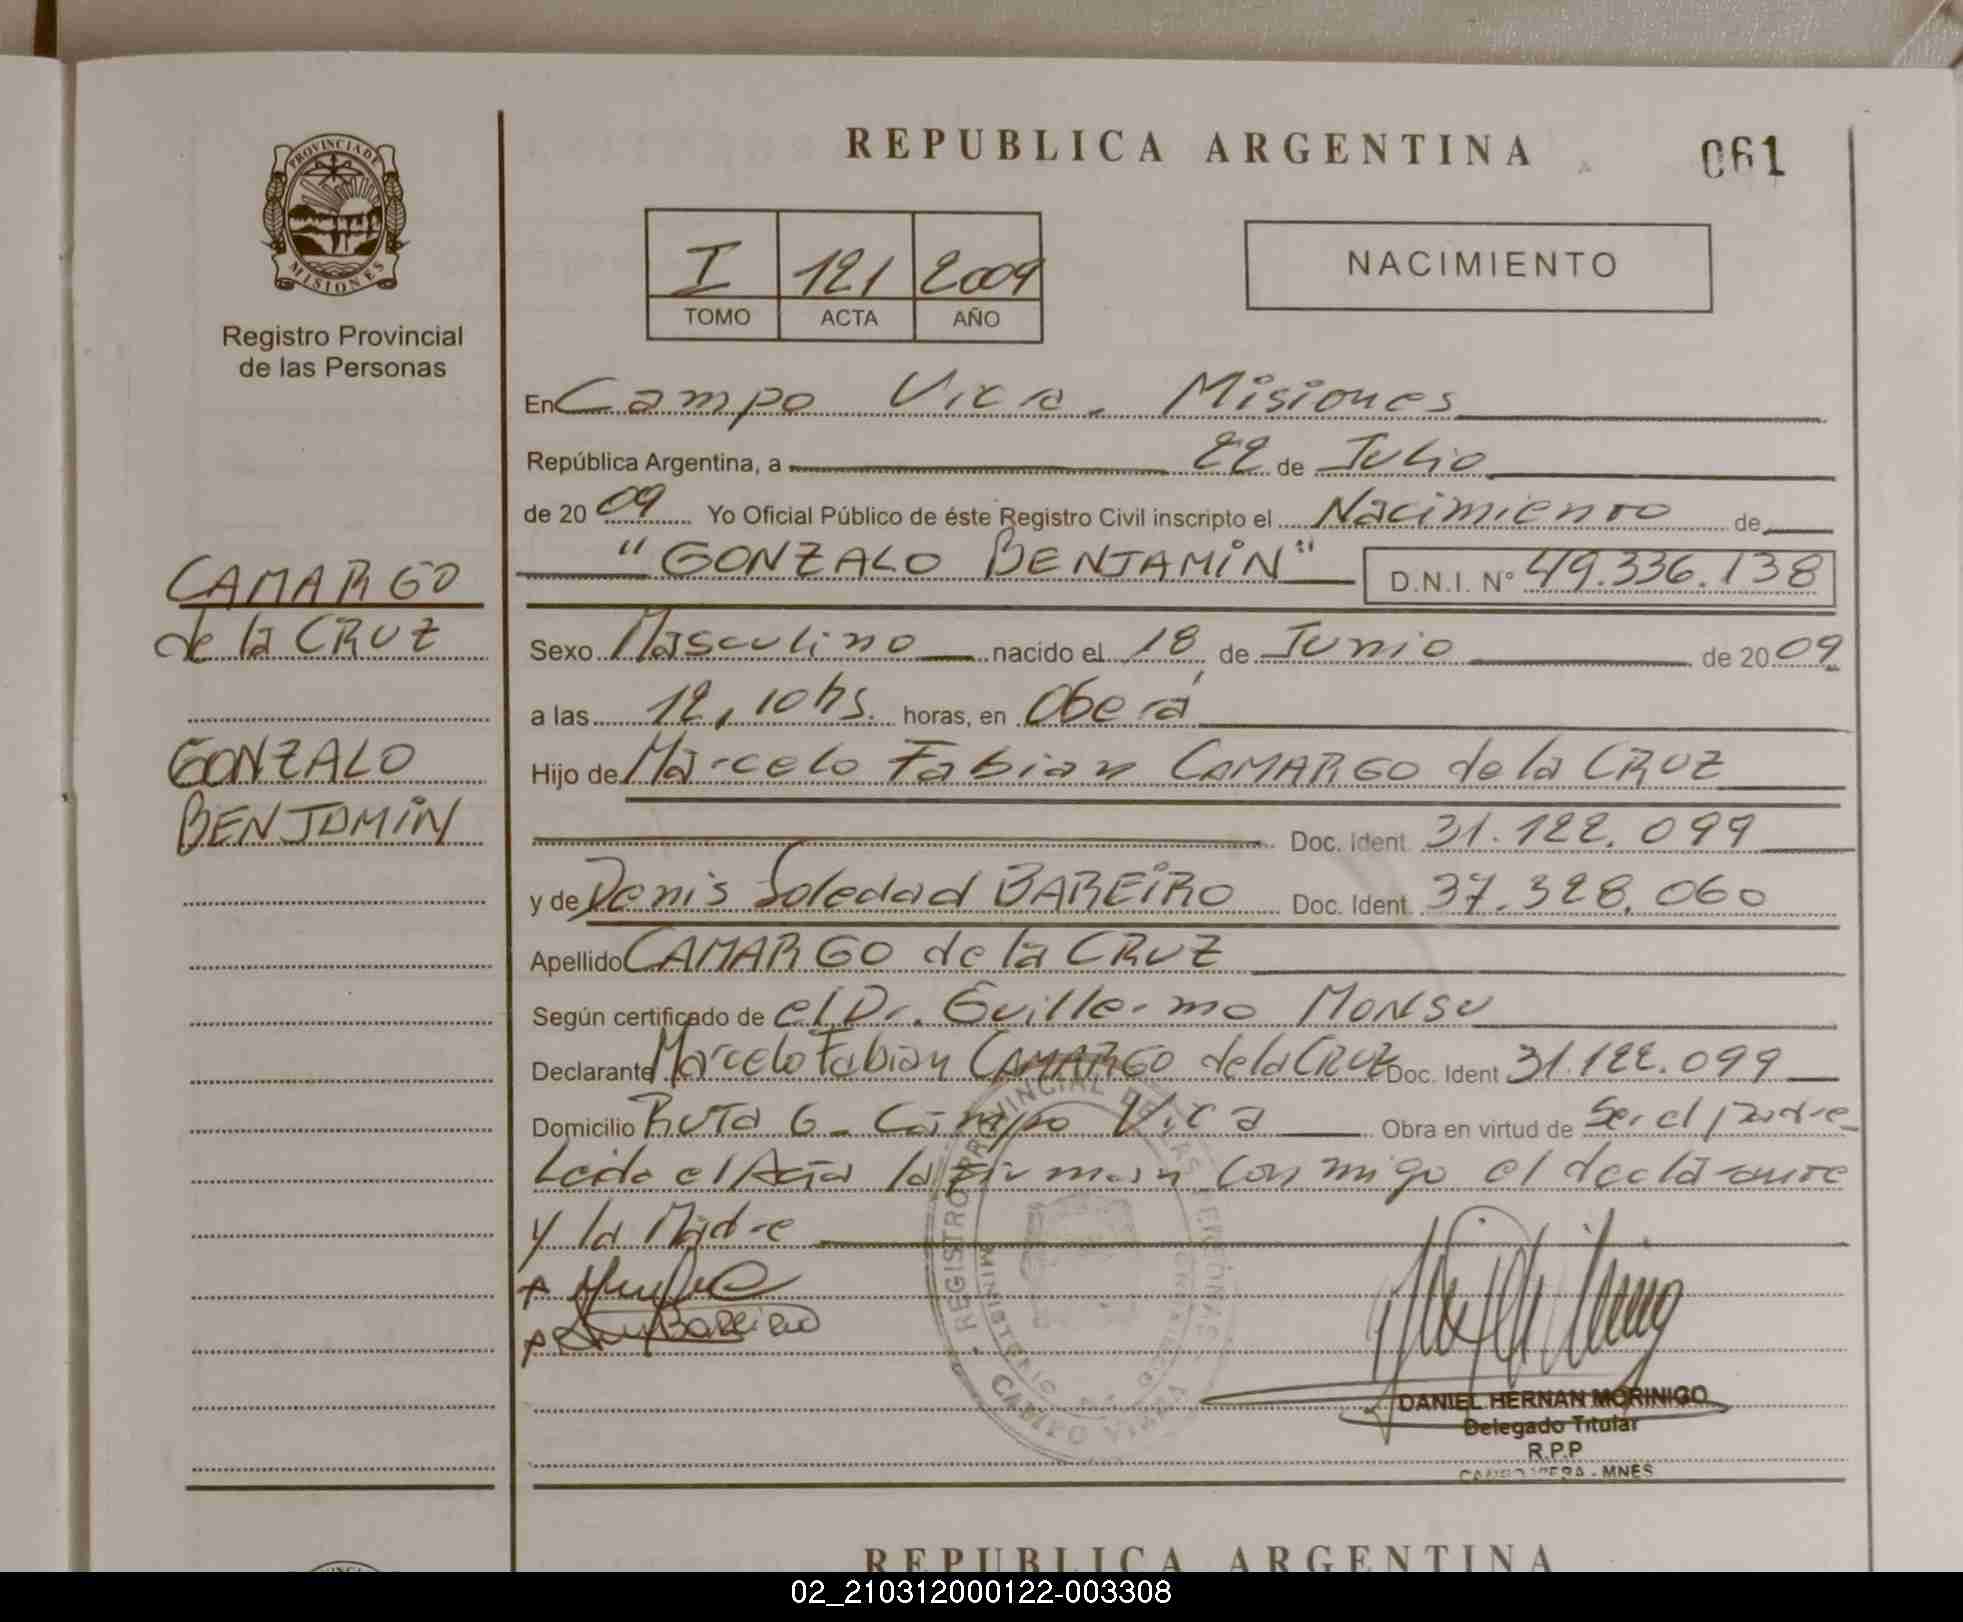 REPUBLICA ARGENTINA
061
PROVINCIA DE
MISIONES
Registro Provincial
de las Personas
I 121 2009
TOMO ACTA AÑO
NACIMIENTO
En Campo Viera. Misiones
República Argentina, a 22 de Julio
de 2009 Yo Oficial Público de éste Registro Civil inscripto el Nacimiento de
"GONZALO BENJAMIN" D.N.I. N° 49.336.138
CAMARGO
de la CRUZ
GONZALO
BENJAMIN
Sexo Masculino nacido el 18 de Junio de 2009
a las 12,10 hs. horas, en Oberá
Hijo de Marcelo Fabian CAMARGO de la CRUZ
Doc. Ident. 31.122.099
y de Denis Soledad BAREIRO Doc. Ident. 37.328.060
Apellido CAMARGO de la CRUZ
Según certificado de el Dr. Guillermo MONSU
Declarante Marcelo Fabian CAMARGO de la CRUZ Doc. Ident 31.122.099
Domicilio Ruta 6 - Campo Viera Obra en virtud de Ser el padre
Leida el Acta la firman conmigo el declarante
y la Madre
REGISTRO PROVINCIAL DE LAS PERSONAS
CAMPO VIERA
DANIEL HERNAN MORINIGO
Delegado Titular
R.P.P
CAMPO VIERA - MNES
REPUBLICA ARGENTINA
02_210312000122-003308